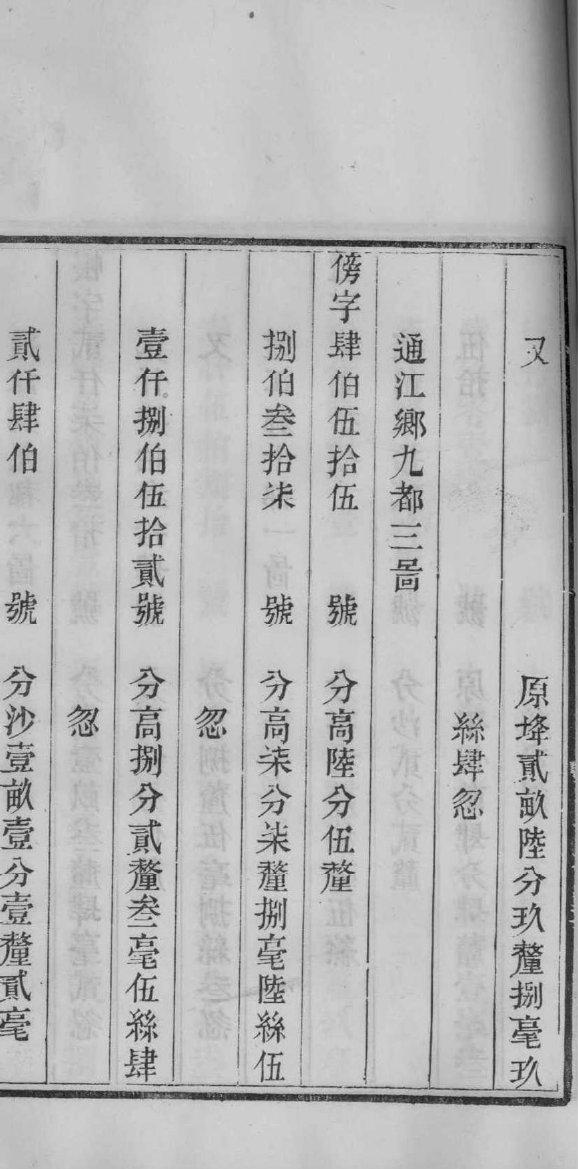 又　原埄貳畝陸分玖釐捌毫玖
絲肆忽
通江鄉九都三啚
傍字肆伯伍拾伍　號　分高陸分伍釐
捌伯叁拾柒　號　分高柒分柒釐捌毫陸絲伍
忽
壹仟捌伯伍拾貳號　分高捌分貳釐叁毫伍絲肆
忽
貳仟肆伯　號　分沙壹畝壹分壹釐貳毫